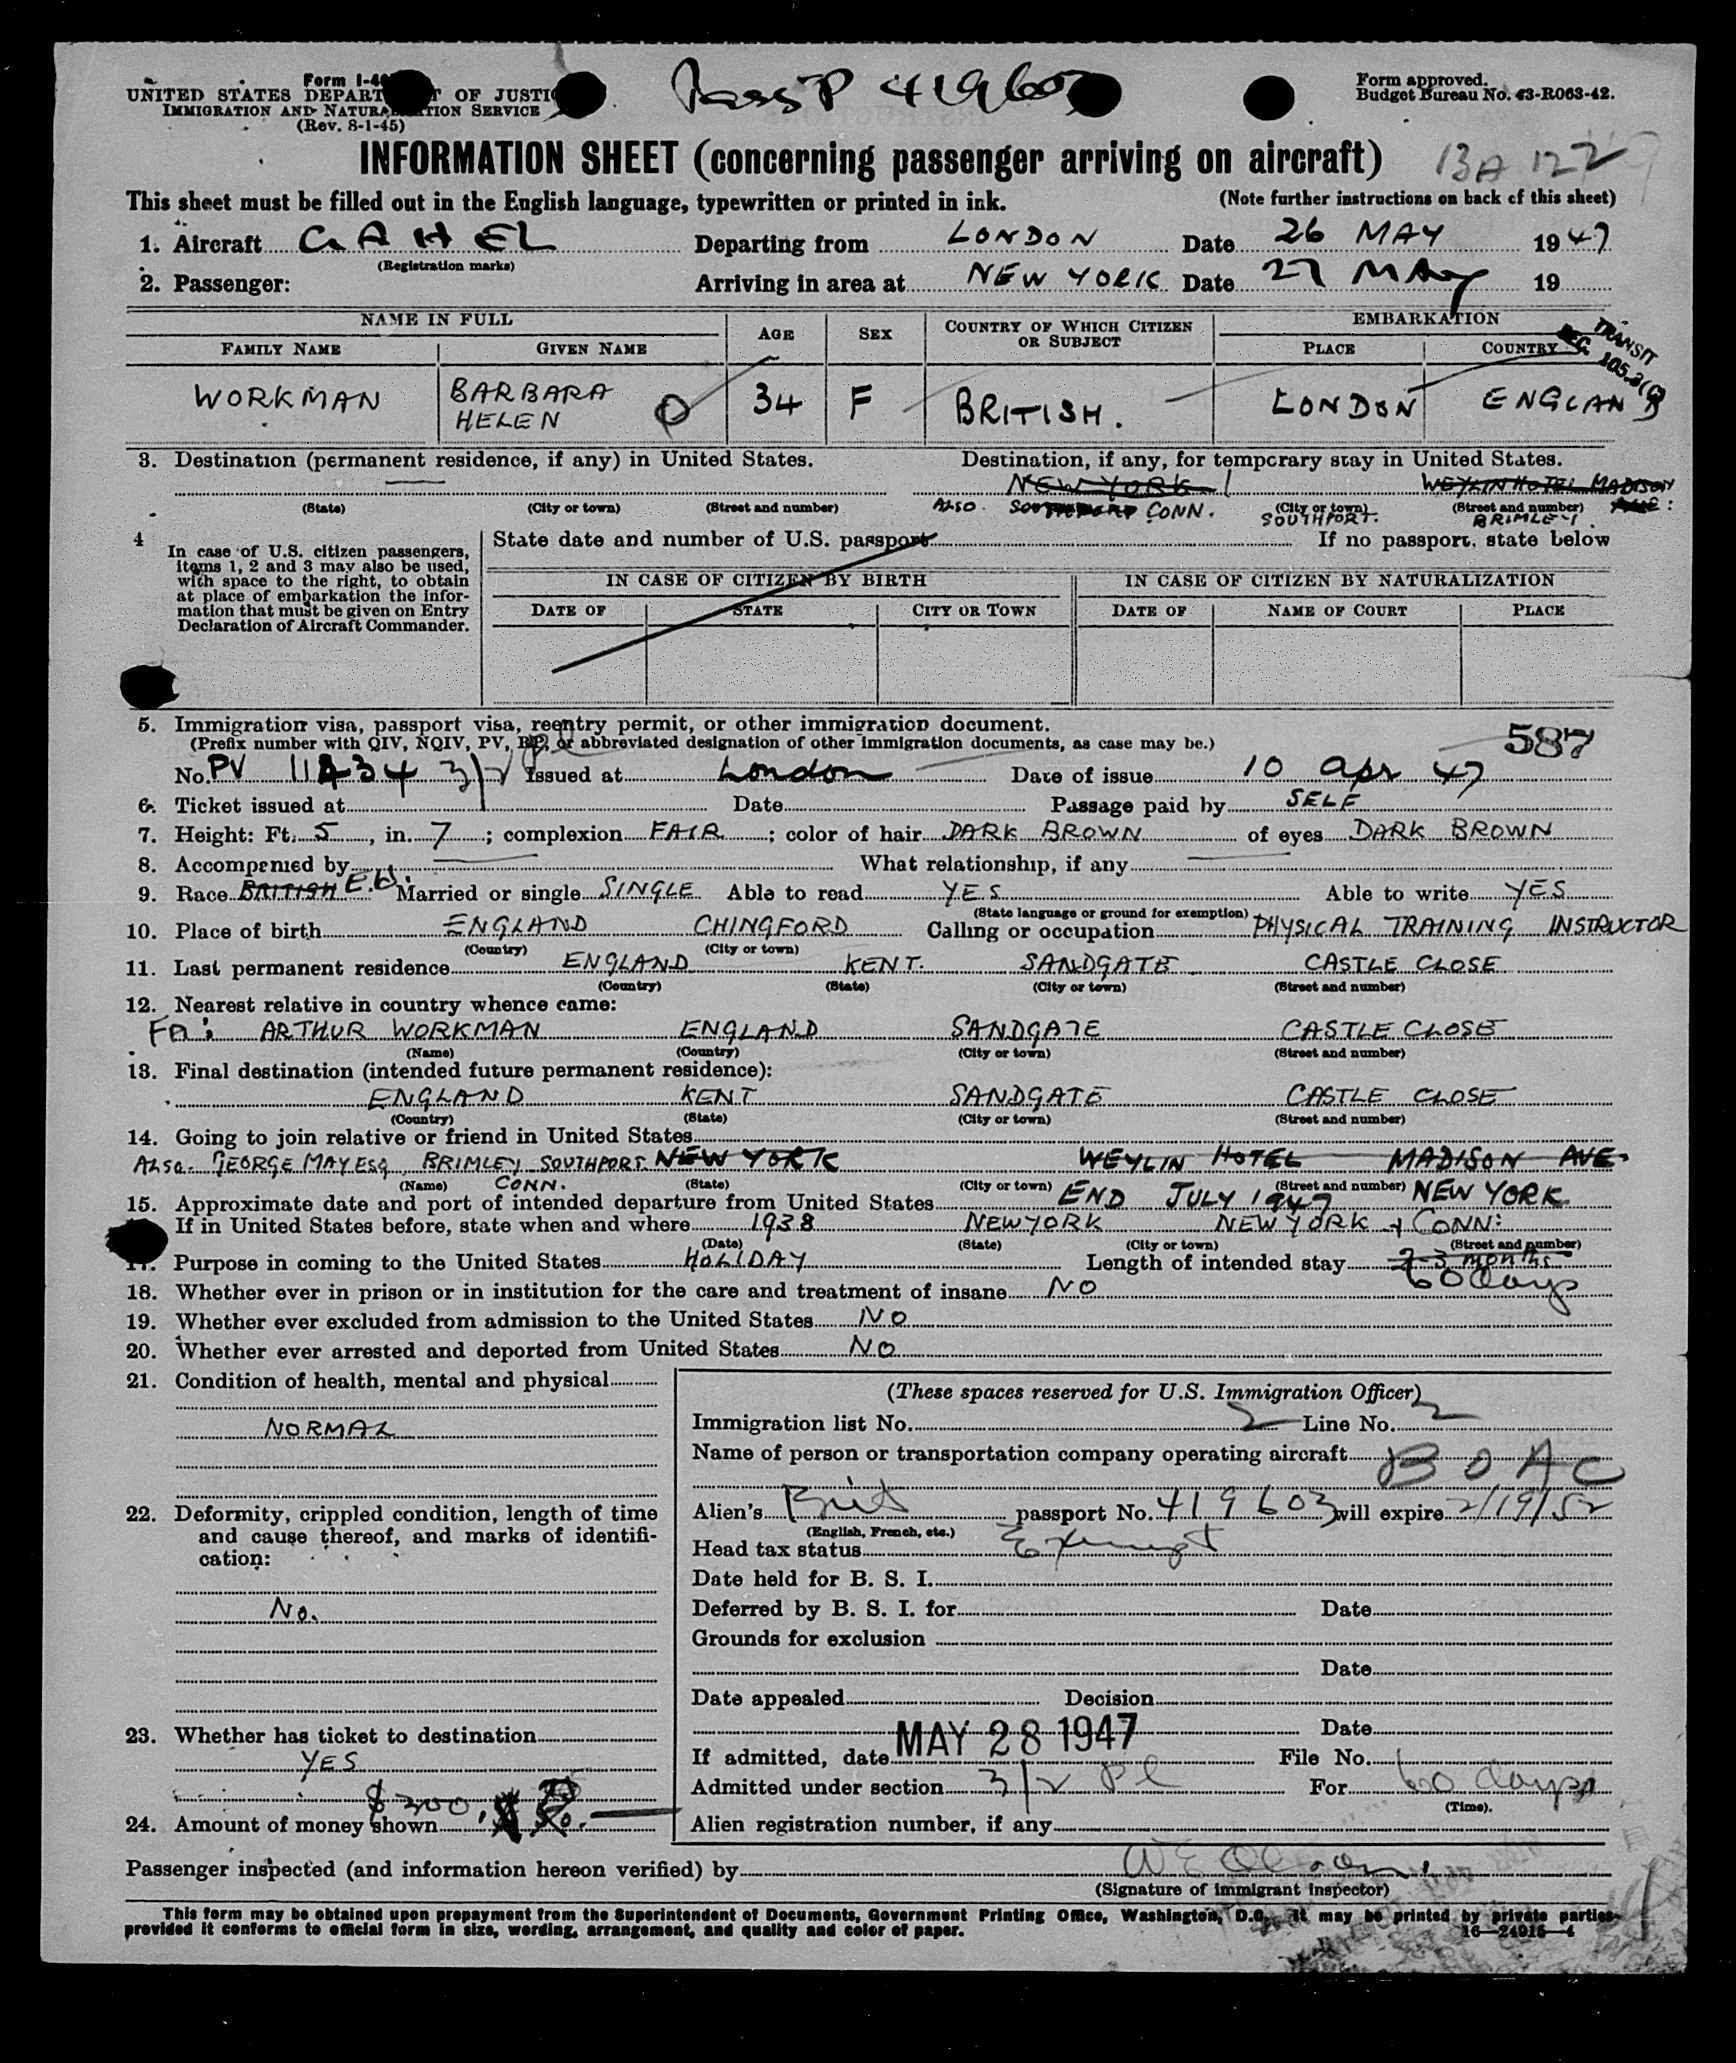 Form I-4
UNITED STATES DEPART T OF JUSTI
IMMIGRATION AND NATURA TION SERVICE
(Rev. 8-1-45)
Pass P 41960
Form approved.
Budget Bureau No. 43-R063-42.
INFORMATION SHEET (concerning passenger arriving on aircraft)
13A 122
This sheet must be filled out in the English language, typewritten or printed in ink. (Note further instructions on back of this sheet)
1. Aircraft GAHEL Departing from LONDON Date 26 MAY 1947
(Registration marks)
2. Passenger: Arriving in area at NEW YORK Date 27 MAY 19
NAME IN FULL AGE SEX COUNTRY OF WHICH CITIZEN OR SUBJECT EMBARKATION
FAMILY NAME GIVEN NAME PLACE COUNTRY
TRANSIT
SEC. 105.3(
WORKMAN BARBARA HELEN 34 F BRITISH. LONDON ENGLAND
3. Destination (permanent residence, if any) in United States. Destination, if any, for temporary stay in United States.
NEW YORK WEYLIN HOTEL MADISON AVE:
(State) (City or town) (Street and number) (City or town) (Street and number)
ALSO. SOUTHPORT CONN. SOUTHPORT. BRIMLEY.
4 In case of U.S. citizen passengers, items 1, 2 and 3 may also be used, with space to the right, to obtain at place of embarkation the information that must be given on Entry Declaration of Aircraft Commander.
State date and number of U.S. passport If no passport, state below
IN CASE OF CITIZEN BY BIRTH IN CASE OF CITIZEN BY NATURALIZATION
DATE OF STATE CITY OR TOWN DATE OF NAME OF COURT PLACE
5. Immigration visa, passport visa, reentry permit, or other immigration document.
(Prefix number with QIV, NQIV, PV, RP, or abbreviated designation of other immigration documents, as case may be.)
587
No. PV 11434 3/2 Issued at London Date of issue 10 apr 47
6. Ticket issued at Date Passage paid by SELF
7. Height: Ft. 5, in. 7; complexion FAIR; color of hair DARK BROWN of eyes DARK BROWN
8. Accompanied by What relationship, if any
9. Race BRITISH Married or single SINGLE Able to read YES Able to write YES
(State language or ground for exemption)
10. Place of birth ENGLAND CHINGFORD Calling or occupation PHYSICAL TRAINING INSTRUCTOR
(Country) (City or town)
11. Last permanent residence ENGLAND KENT. SANDGATE CASTLE CLOSE
(Country) (State) (City or town) (Street and number)
12. Nearest relative in country whence came:
Fa: ARTHUR WORKMAN ENGLAND SANDGATE CASTLE CLOSE
(Name) (Country) (City or town) (Street and number)
13. Final destination (intended future permanent residence):
ENGLAND KENT SANDGATE CASTLE CLOSE
(Country) (State) (City or town) (Street and number)
14. Going to join relative or friend in United States
ALSO. GEORGE MAY ESQ, BRIMLEY SOUTHPORT. NEW YORK WEYLIN HOTEL MADISON AVE.
(Name) CONN. (State) (City or town) (Street and number)
15. Approximate date and port of intended departure from United States END JULY 1947 NEW YORK
If in United States before, state when and where 1938 NEW YORK NEW YORK + CONN:
(Date) (State) (City or town) (Street and number)
17. Purpose in coming to the United States HOLIDAY Length of intended stay 2-3 months
60 days
18. Whether ever in prison or in institution for the care and treatment of insane NO
19. Whether ever excluded from admission to the United States NO
20. Whether ever arrested and deported from United States NO
21. Condition of health, mental and physical
NORMAL
22. Deformity, crippled condition, length of time and cause thereof, and marks of identification:
No.
23. Whether has ticket to destination
YES
24. Amount of money shown $300.
(These spaces reserved for U.S. Immigration Officer)
Immigration list No. 2 Line No. 2
Name of person or transportation company operating aircraft BOAC
Alien's Brit passport No. 419603 will expire 2/19/52
(English, French, etc.)
Head tax status Exempt
Date held for B. S. I.
Deferred by B. S. I. for Date
Grounds for exclusion
Date
Date appealed Decision
Date
If admitted, date MAY 28 1947 File No.
Admitted under section 3/2 Pl For 60 days
(Time).
Alien registration number, if any
Passenger inspected (and information hereon verified) by
(Signature of immigrant inspector)
This form may be obtained upon prepayment from the Superintendent of Documents, Government Printing Office, Washington, D.C. It may be printed by private parties
provided it conforms to official form in size, wording, arrangement, and quality and color of paper. 16—24915—4